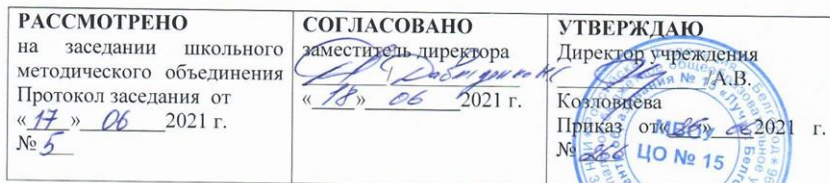 РАССМОТРЕНО
на заседании школьного
методического объединения
Протокол заседания от
« 17 » 06 2021 г.
№ 5
СОГЛАСОВАНО
заместитель директора
« 18 » 06 2021 г.
УТВЕРЖДАЮ
Директор учреждения
А.В.
Козловцева
Приказ от 2021 г.
№
МБОУ
ЦО № 15